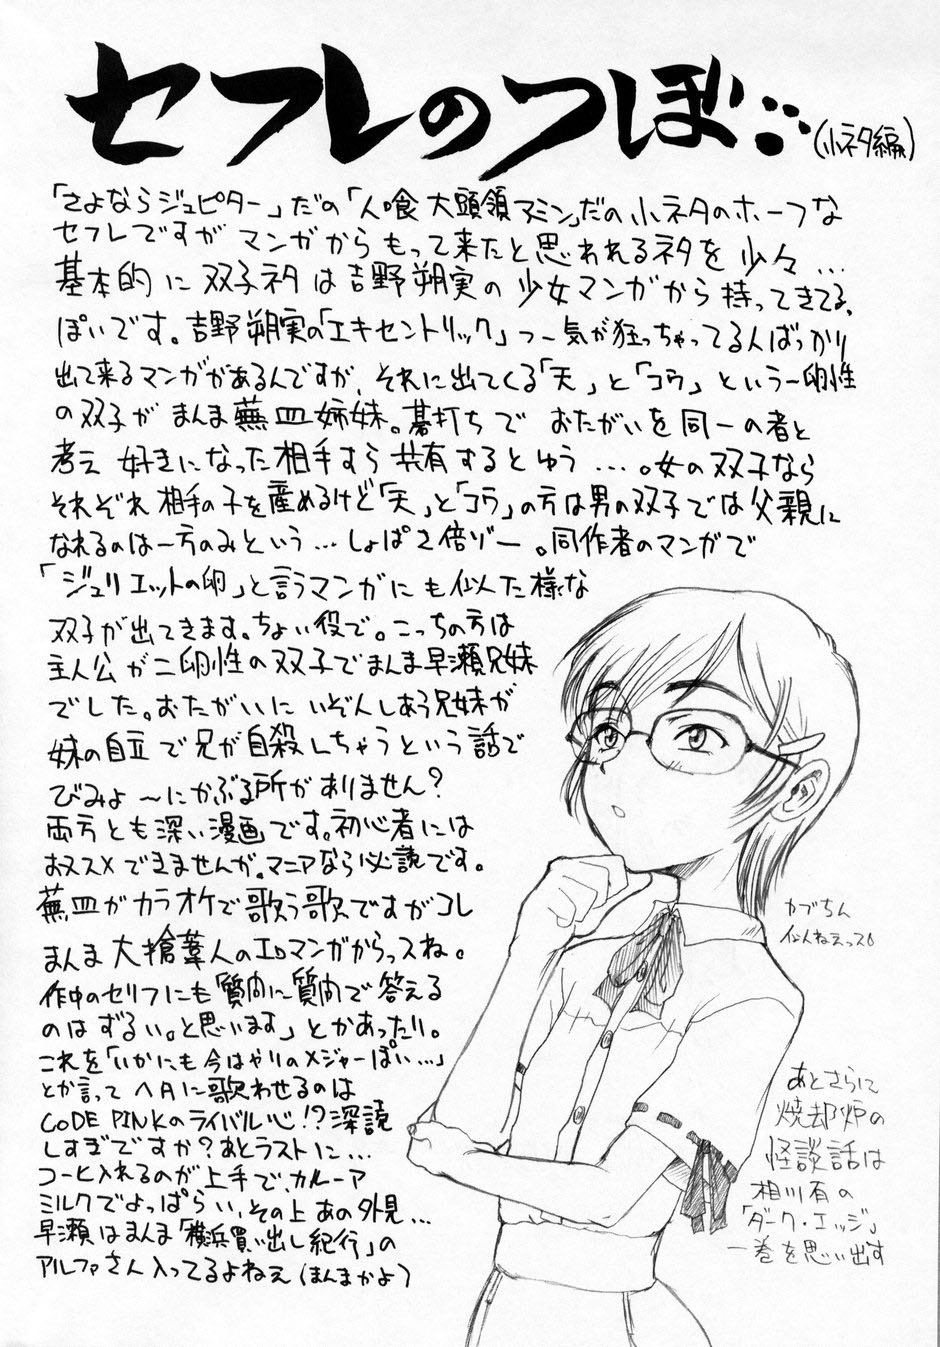 セフレのつぼ…
(小ネタ編)
「さよならジュピター」だの「人喰大頭領マミン」だの小ネタのホーフな
セフレですがマンガからもって来たと思われるネタを少々…
基本的に双子ネタは吉野朔実の少女マンガから持ってきてる、
ぽいです。吉野朔実の「エキセントリック」つー気が狂っちゃってる人ばっかり
出て来るマンガがあるんですが、それに出てくる「天」と「コウ」という一卵性
の双子がまんま蕪皿姉妹。碁打ちでおたがいを同一の者と
考え好きになった相手すら共有するとゆう…。女の双子なら
それぞれ相手の子を産めるけど「天」と「コウ」の方は男の双子では父親に
なれるのは一方のみという…しょぱさ倍ゾー。同作者のマンガで
「ジュリエットの卵」と言うマンガにも似た様な
双子が出てきます。ちょい役で。こっちの方は
主人公が二卵性の双子でまんま早瀬兄妹
でした。おたがいにいぞんしあう兄妹が
妹の自立で兄が自殺しちゃうという話で
びみょ〜にかぶる所がありません?
両方とも深い漫画です。初心者には
おススメできませんが。マニアなら必読です。
蕪皿がカラオケで歌う歌ですがコレ
まんま大槍葦人のエロマンガからっスね。
作中のセリフにも「質問に質問で答える
のはずるい。と思います」とかあったり。
これを「いかにも今はやりのメジャーぽい…」
とか言ってヘタに歌わせるのは
CODE PINKのライバル心!?深読
しすぎですか?あとラストに…
コーヒ入れるのが上手で、カルーア
ミルクでよっぱらい、その上あの外見…
早瀬はまんま「横浜買い出し紀行」の
アルファさん入ってるよねえ(ほんまかよ)
カブちん
似んねえっス
あとさらに
焼却炉の
怪談話は
相川有の
「ダーク・エッジ」
一巻を思い出す